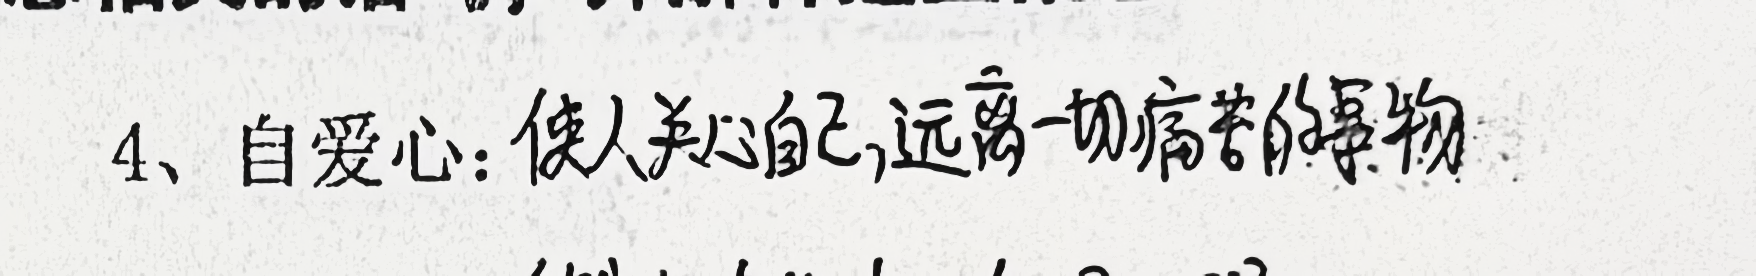 4、自爱心:使人关心自己,远离一切痛苦的事物